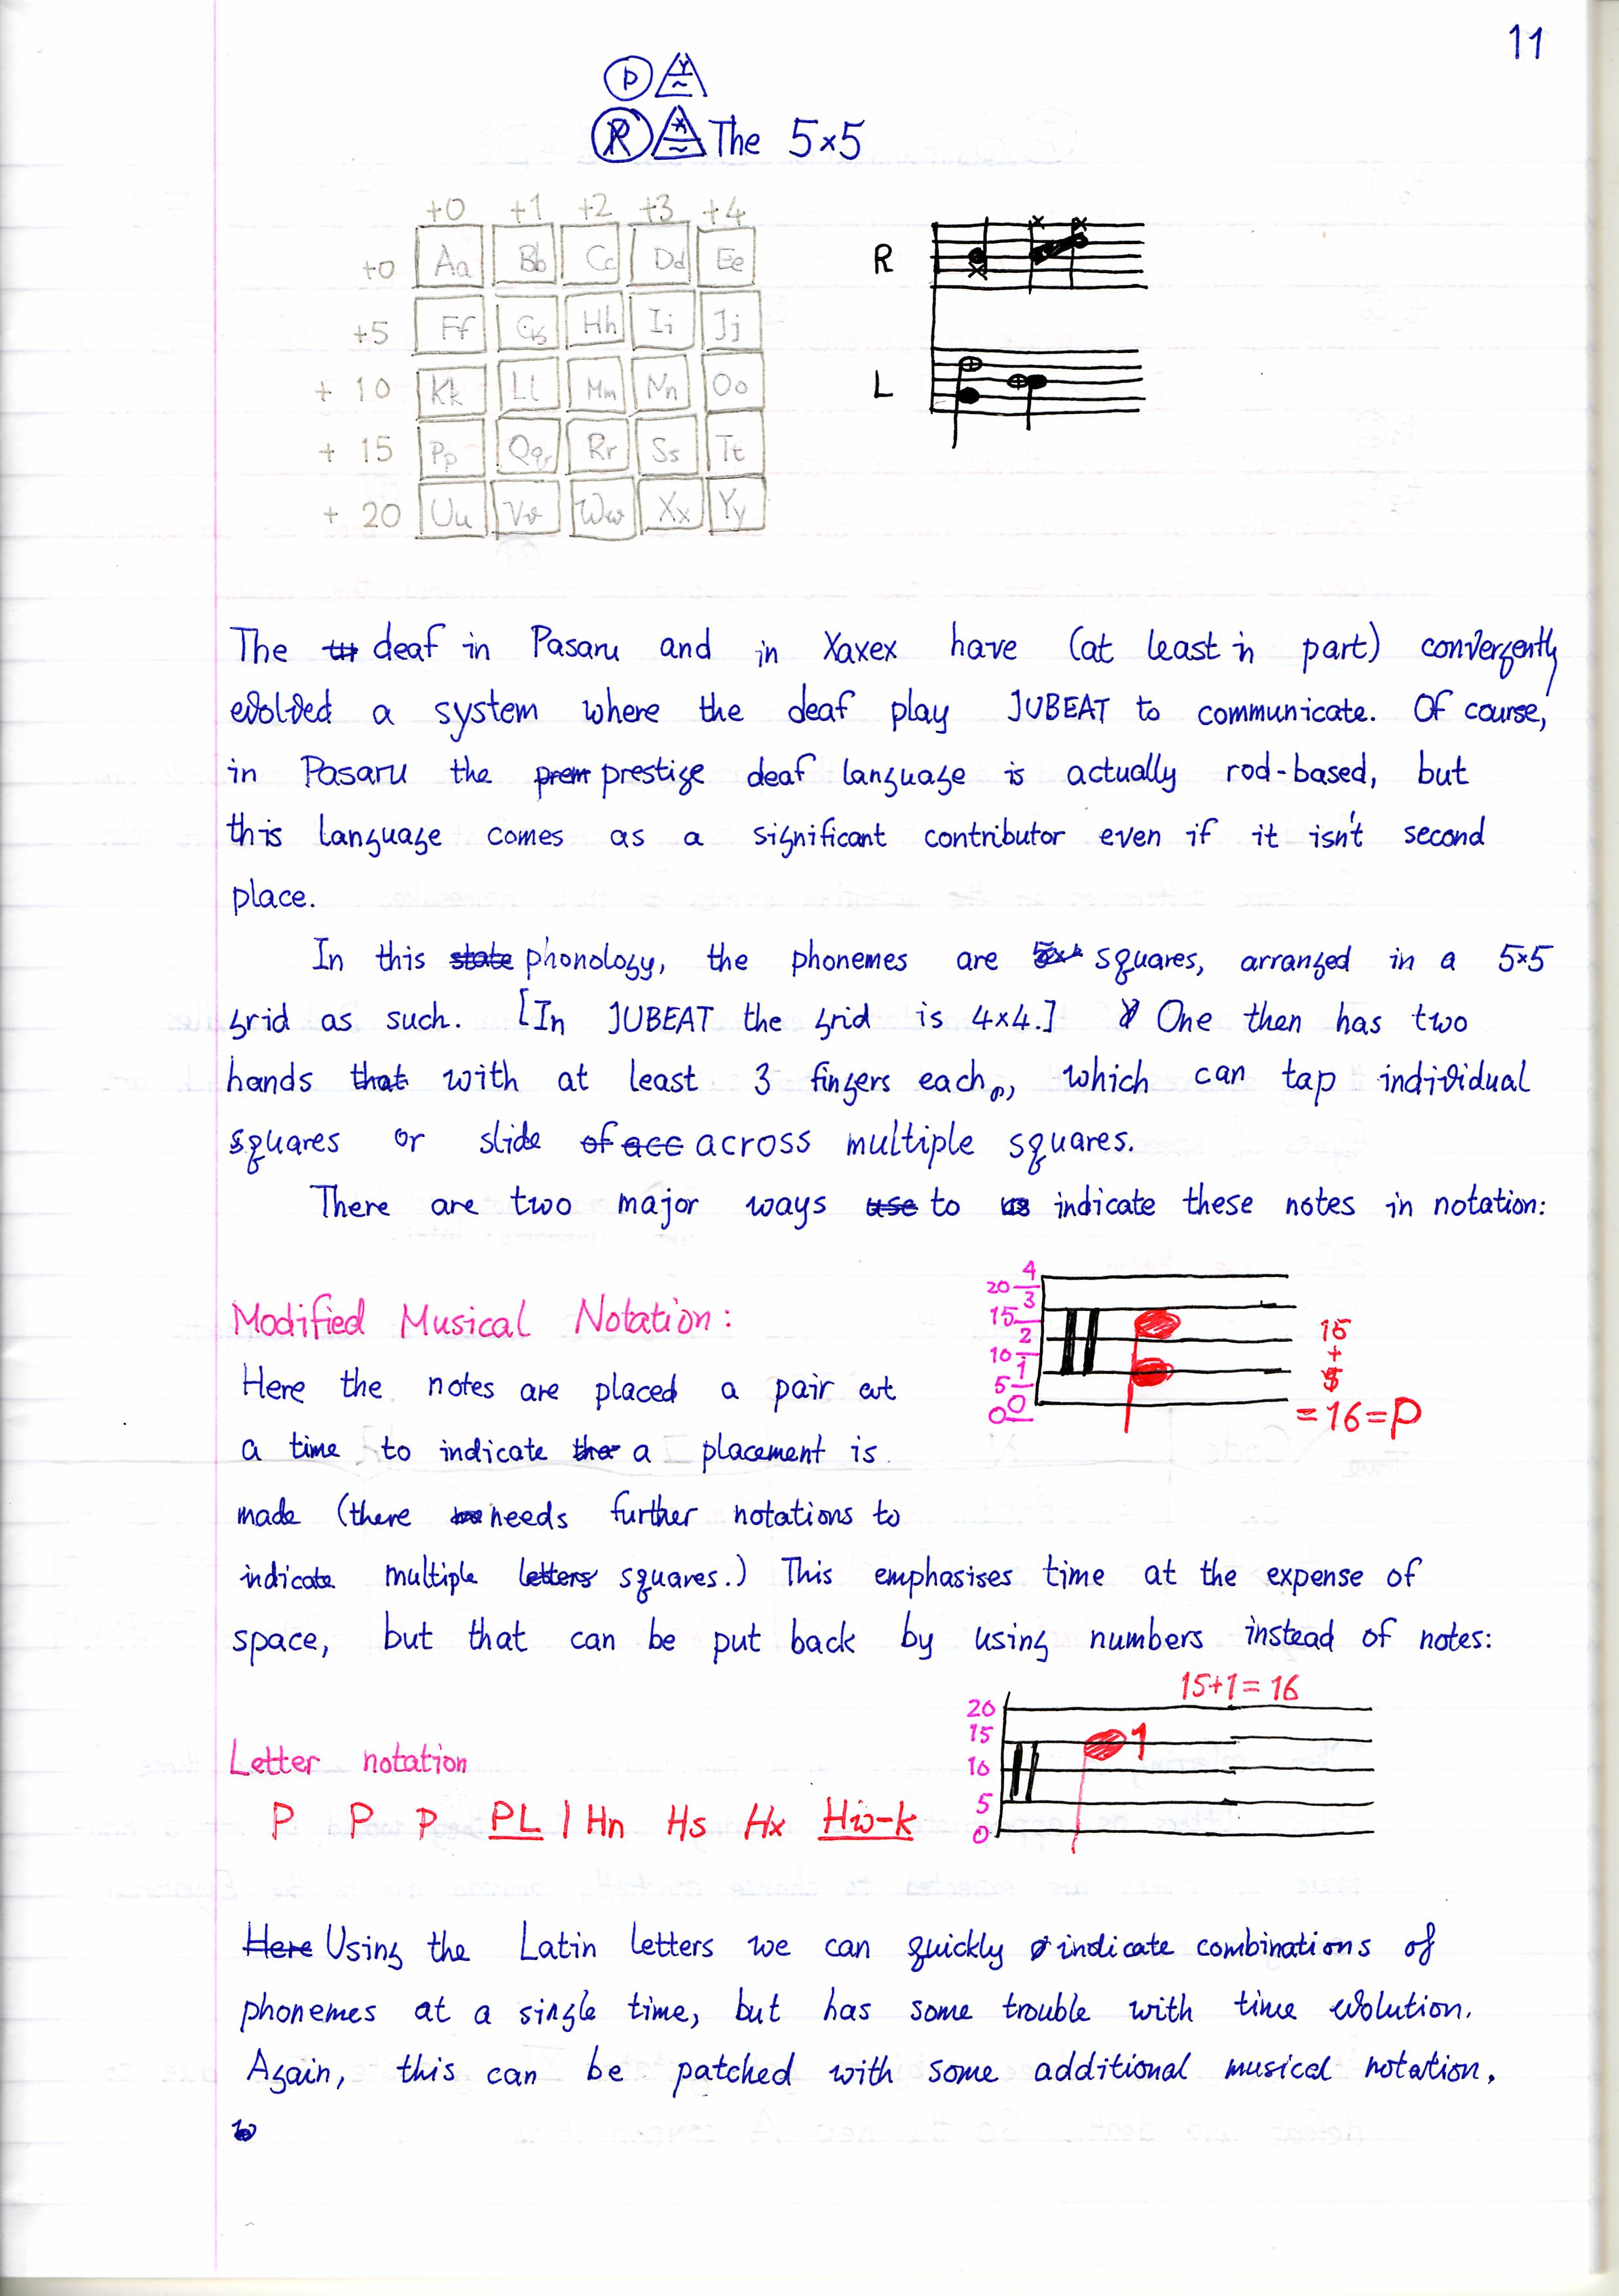 11
P Y ~
R * ~ The 5×5
+0 +1 +2 +3 +4
+0 Aa Bb Cc Dd Ee
+5 Ff Gg Hh Ii Jj
+ 10 Kk Ll Mm Nn Oo
+ 15 Pp Qq Rr Ss Tt
+ 20 Uu Vv Ww Xx Yy
R
L
The deaf in Pasaru and in Xaxex have (at least in part) convergently
evolved a system where the deaf play JUBEAT to communicate. Of course,
in Pasaru the prem prestige deaf language is actually rod-based, but
this language comes as a significant contributor even if it isn't second
place.
In this state phonology, the phonemes are squares, arranged in a 5×5
grid as such. [In JUBEAT the grid is 4×4.] One then has two
hands that with at least 3 fingers each, which can tap individual
squares or slide of acc across multiple squares.
There are two major ways use to us indicate these notes in notation:
Modified Musical Notation:
Here the notes are placed a pair at
a time to indicate the a placement is
made (there needs further notations to
indicate multiple letters squares.) This emphasises time at the expense of
space, but that can be put back by using numbers instead of notes:
4
20
3
15
2
10
1
5
0
0
15
+
= 16 = P
15+1= 16
20
15
10
5
0
1
Letter notation
P P P PL | Hn Hs Hx Hw-k
Here Using the Latin letters we can quickly indicate combinations of
phonemes at a single time, but has some trouble with time evolution.
Again, this can be patched with some additional musical notation.